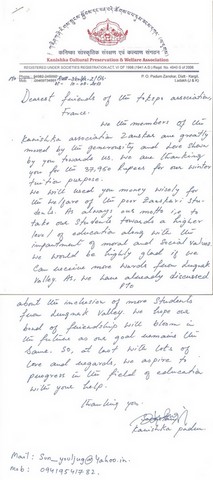 कनिष्का सांस्कृतिक संरक्षण एवं कल्याण संस्थान
Kanishka Cultural Preservation & Welfare Association
REGISTERED UNDER SOCIETIES REGISTRATION ACT
P.O. Padum Zanskar, Distt.- Kargil,
Ladakh (J & K)
Dearest friends of the association,
France.
We the members of the
Kanishka association Zanskar are greatly
moved by the generosity and love shown
by you towards us. We are thanking
you for the 37,950 Rupees for our winter
tuition purpose.
We will used you money wisely for
the welfare of the poor Zanskari Stu-
dents. As always our motto is to
take our Students towards a higher
level of education along with the
impartment of moral and social values.
We would be highly glad if we
Can receive more words from
Valley. As, we have already discussed
PTO
about the inclusion of more Students
from Lungnak Valley. We hope our
bond of friendship will bloom in
the future as our goal remains the
Same. So, at last with lots of
love and regards, we aspire to
progress in the field of education
with your help.
Thanking you.
Kanishka padum
Mail:
Mob: 09419541782.